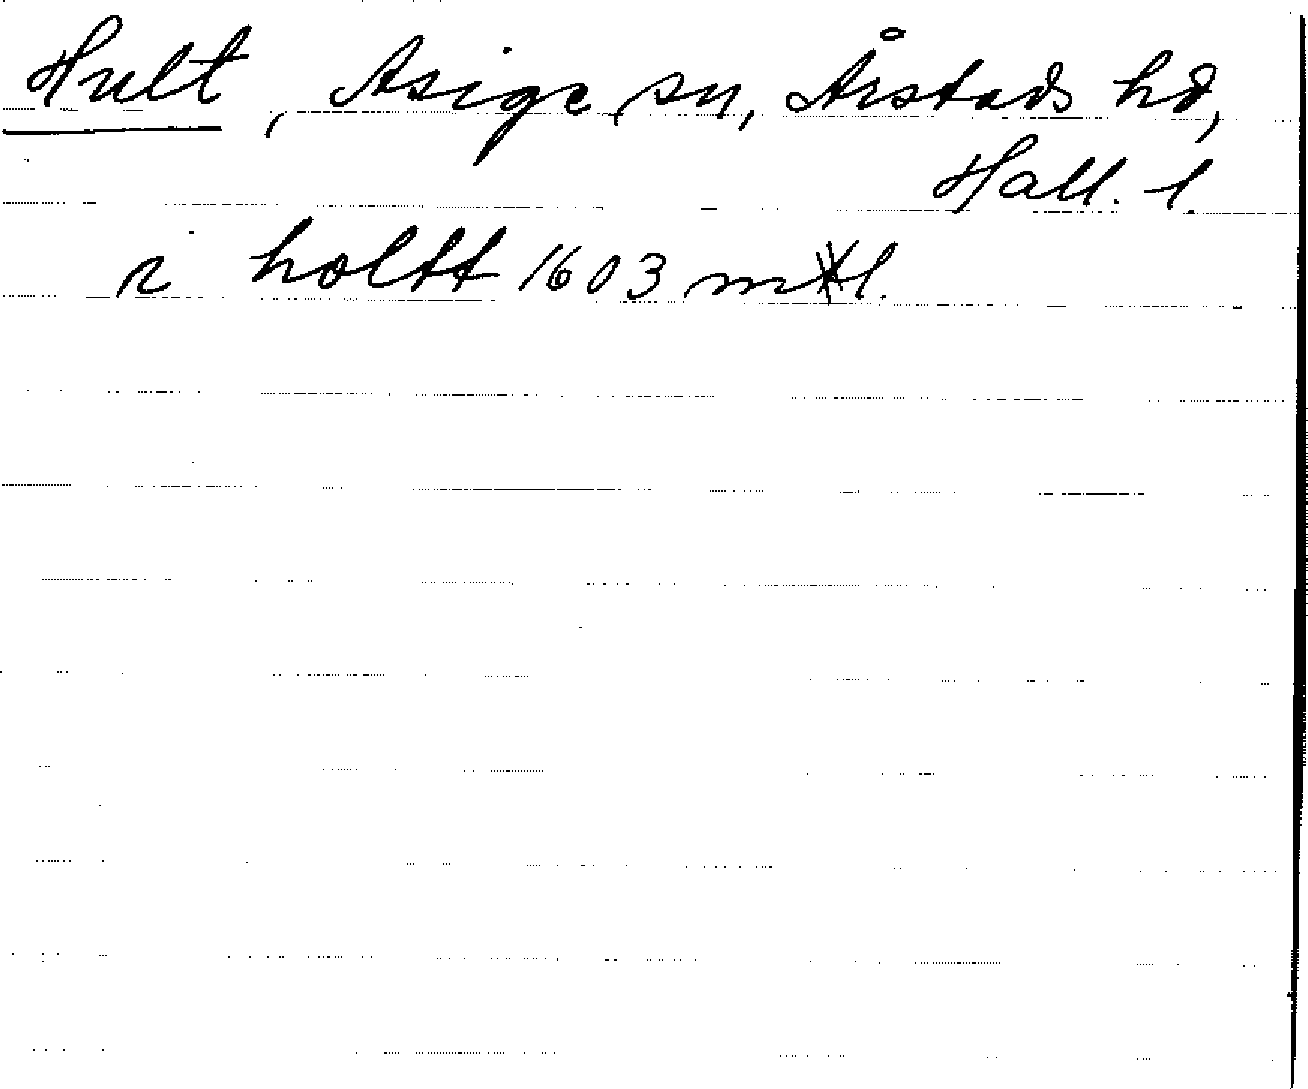 Hult, Asige sn, Årstads hd,
Hall. l.
r holtt 1603 mtl.